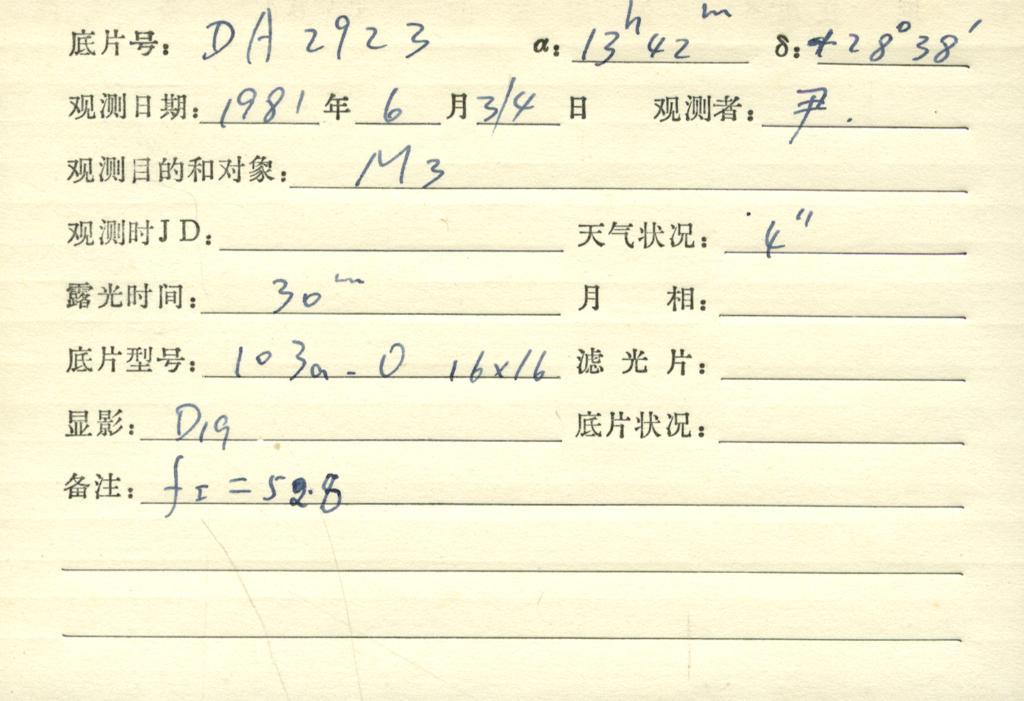 底片号: DA 2923 α: 13ʰ 42ᵐ δ: +28°38′
观测日期: 1981 年 6 月 3/4 日 观测者: 尹.
观测目的和对象: M3
观测时JD: 天气状况: 4″
露光时间: 30ᵐ 月 相:
底片型号: 103a-O 16×16 滤光片:
显影: D19 底片状况:
备注: f_I = 52.8